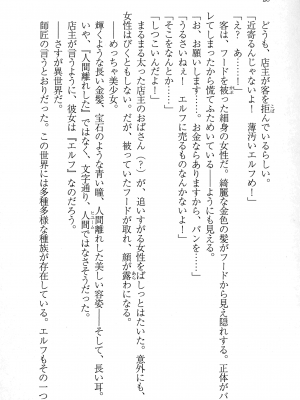 どうも、店主が客を拒んでいるらしい。
「近寄るんじゃないよ！　薄汚いエルフめ！」
「っ、あ……」
客は、フードを被った細身の女性だ。綺麗な金色の髪がフードから見え隠れする。正体がバ
レてしまったから慌てふためいている――ようにも見える。
「お、お願いします……。お金ならありますから、パンを……」
「うるさいねぇ！　エルフに売るものなんかないよ！」
「そこをなんとか……」
「しつこいんだよ！」
まるまる太った店主のおばさん（？）が、追いすがる女性をばしっとはたいた。意外にも、
女性はびくともしない。だが、被っていたフードが取れ、顔が露わになる。
――めっちゃ美少女。
輝くような長い金髪、宝石のような青い瞳、人間離れした美しい容姿――そして、長い耳。
いや、『人間離れした』ではなく、文字通り、人間ではなさそうだった。
店主が言うように、彼女は『エルフ』なのだろう。
――さすが異世界だ。
師匠の言うとおりだった。この世界には多種多様な種族が存在している。エルフもその一つ